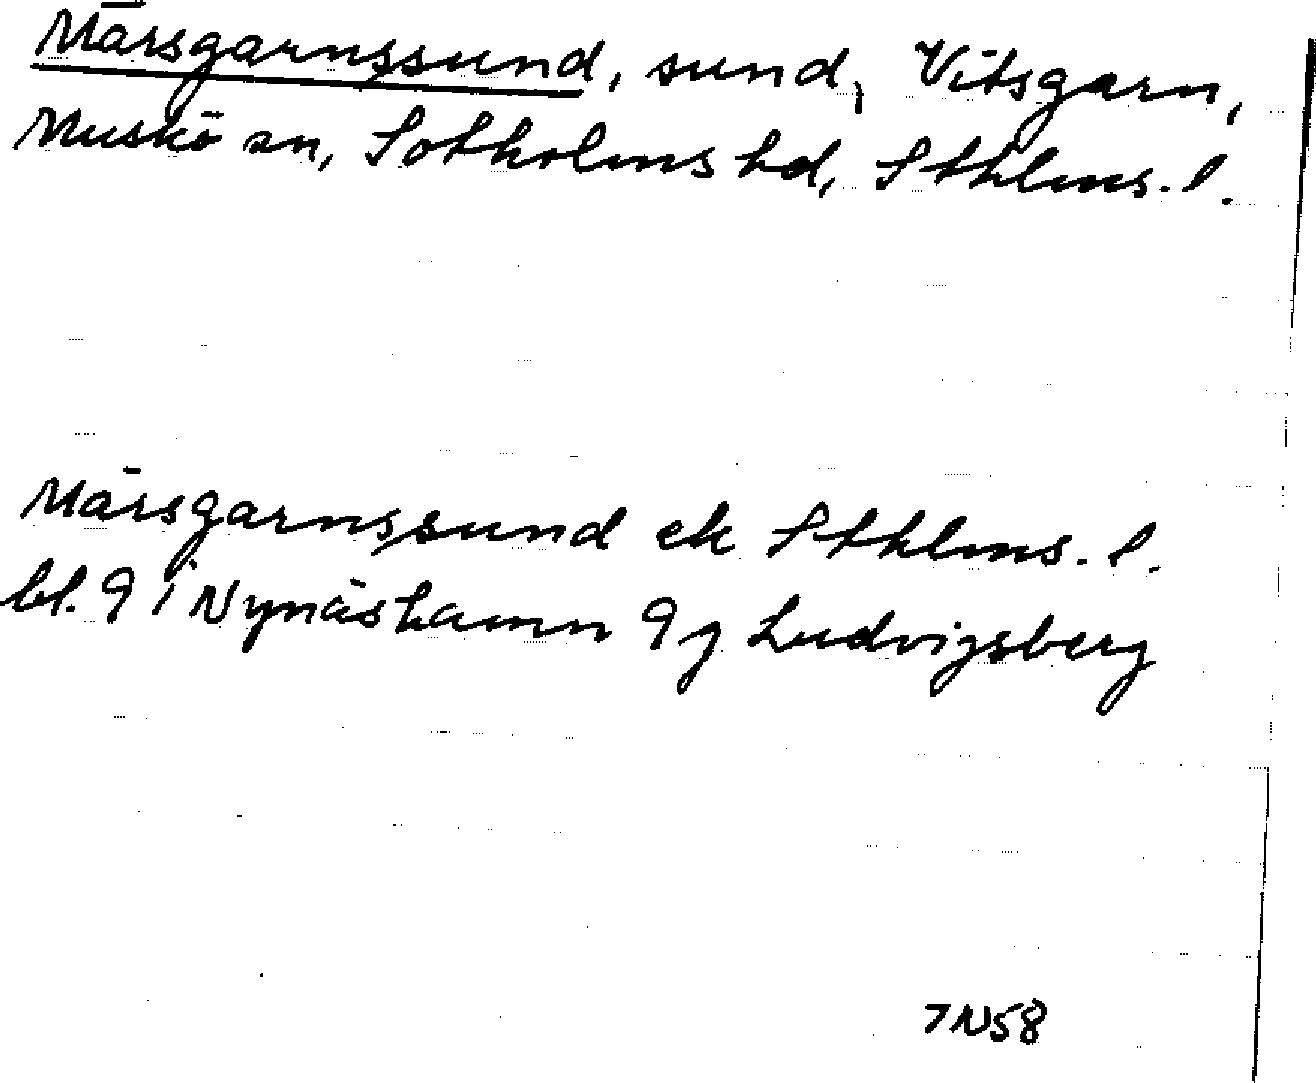 Märsgarnssund, sund, Vitsgarn,
Muskö sn, Sotholms hd, Sthlms. l.
Märsgarnssund ek Sthlms. l.
bl. 9 i Nynäshamn 9 j Ludvigsberg
7N58